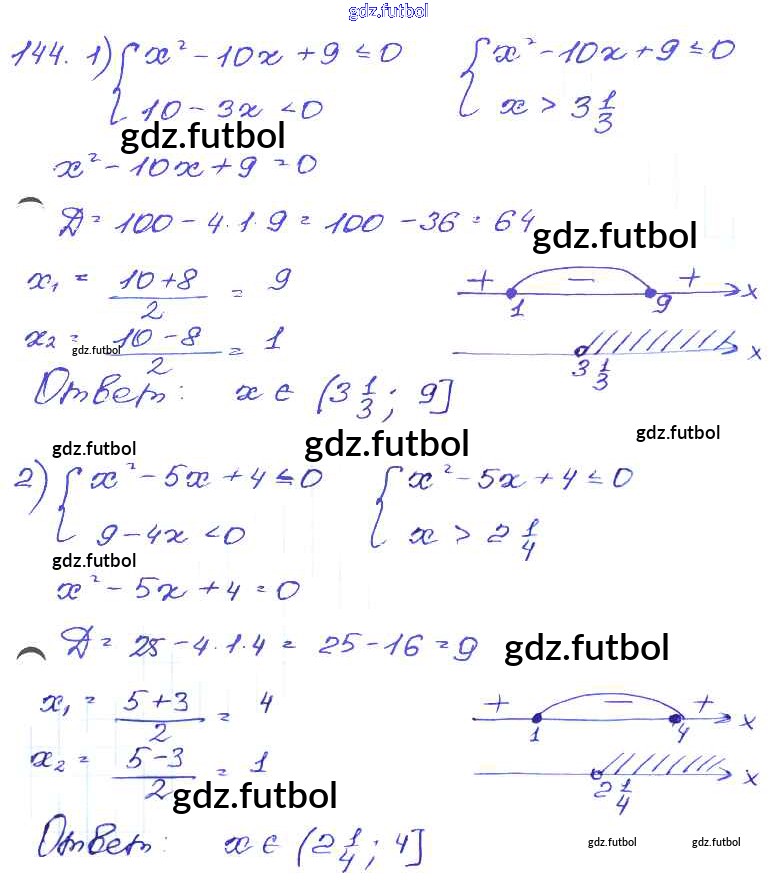 gdz.futbol
144. 1) { x² - 10x + 9 ≤ 0 { x² - 10x + 9 ≤ 0
10 - 3x < 0 x > 3 1/3
gdz.futbol
x² - 10x + 9 = 0
D = 100 - 4·1·9 = 100 - 36 = 64
gdz.futbol
x₁ = (10+8)/2 = 9
+ - + x
1 9
x₂ = (10-8)/2 = 1
gdz.futbol
x
3 1/3
Ответ: x ∈ (3 1/3; 9]
gdz.futbol
gdz.futbol
gdz.futbol
2) { x² - 5x + 4 ≤ 0 { x² - 5x + 4 ≤ 0
9 - 4x < 0 x > 2 1/4
gdz.futbol
x² - 5x + 4 = 0
D = 25 - 4·1·4 = 25 - 16 = 9
gdz.futbol
x₁ = (5+3)/2 = 4
+ - + x
1 4
x₂ = (5-3)/2 = 1
x
2 1/4
gdz.futbol
Ответ: x ∈ (2 1/4; 4]
gdz.futbol gdz.futbol